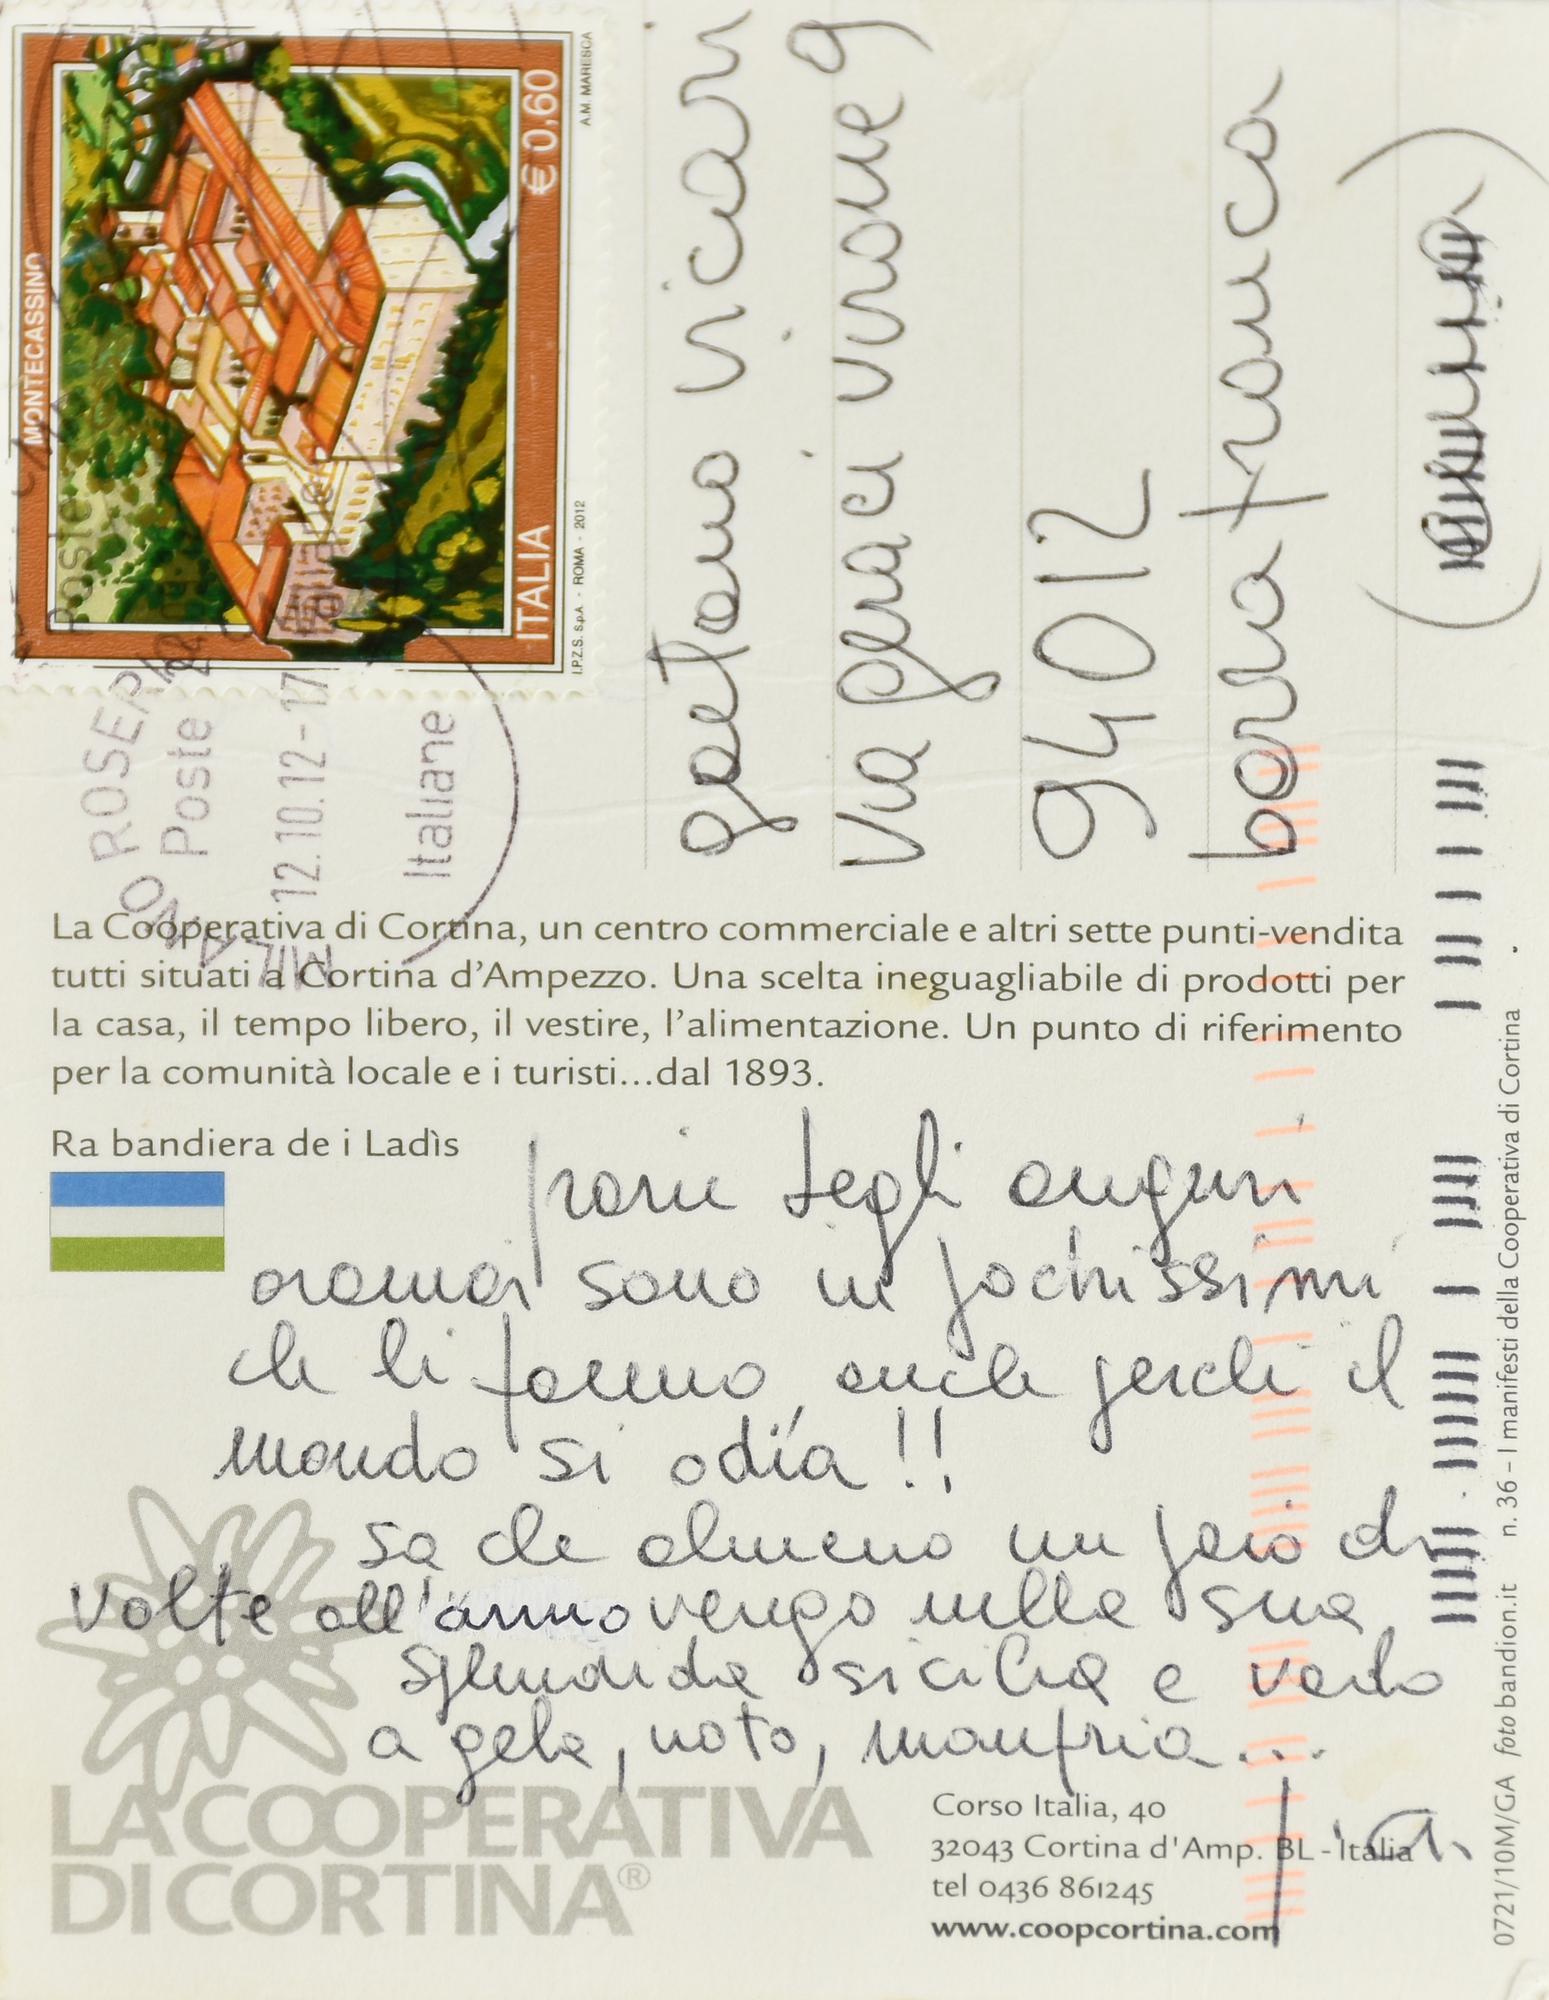 MONTECASSINO
€ 0,60
ITALIA
A.M. MARESCA
I.P.Z.S. S.p.A. - ROMA - 2012
MILANO ROSERIO
Poste
12.10.12-17
Italiane
gaetano vicari
Via geraci virone 9
94012
barrafranca
La Cooperativa di Cortina, un centro commerciale e altri sette punti-vendita
tutti situati a Cortina d'Ampezzo. Una scelta ineguagliabile di prodotti per
la casa, il tempo libero, il vestire, l'alimentazione. Un punto di riferimento
per la comunità locale e i turisti...dal 1893.
Ra bandiera de i Ladìs
degli auguri
oramai sono in pochissimi
che li fanno anche perché il
mondo si odia !!
sa che almeno un paio di
volte all'anno vengo nella sua
splendida sicilia e vado
a gela, noto, manfria...
LA COOPERATIVA
DI CORTINA®
Corso Italia, 40
32043 Cortina d'Amp. BL - Italia
tel 0436 861245
www.coopcortina.com
0721/10M/GA foto bandion.it n. 36 – I manifesti della Cooperativa di Cortina